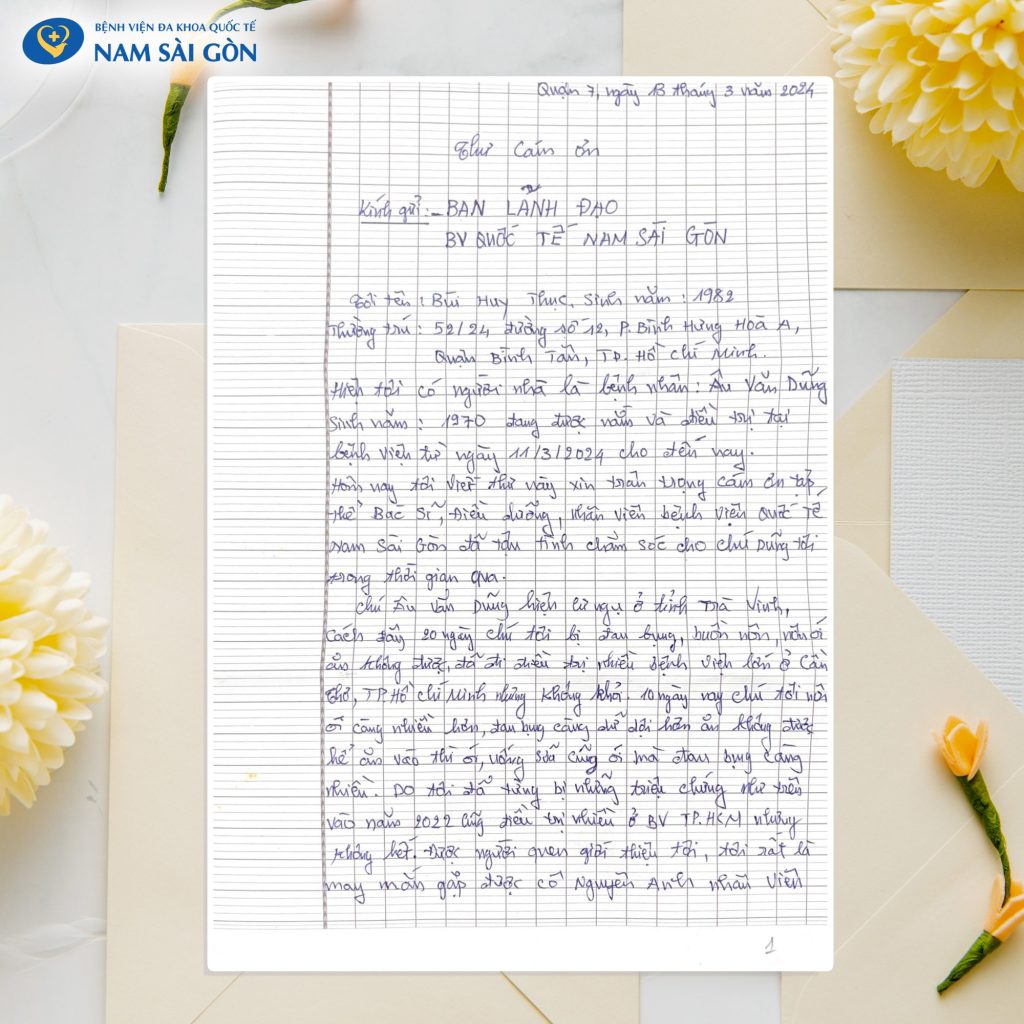 BỆNH VIỆN ĐA KHOA QUỐC TẾ
NAM SÀI GÒN
Quận 7, ngày 13 tháng 3 năm 2024
Thư Cám ơn
Kính gửi: - BAN LÃNH ĐẠO
BV QUỐC TẾ NAM SÀI GÒN
Tôi tên : Bùi Huy Thục, Sinh năm : 1982
Thường trú : 52/24 đường số 12, P. Bình Hưng Hoà A,
Quận Bình Tân, TP. Hồ Chí Minh.
Hiện tôi có người nhà là bệnh nhân : Âu Văn Dũng
Sinh năm : 1970 đang được nằm và điều trị tại
bệnh viện từ ngày 11/3/2024 cho đến nay.
Hôm nay tôi viết thư này xin trân trọng cám ơn tập
thể Bác Sĩ, Điều dưỡng, nhân viên bệnh viện Quốc Tế
Nam Sài Gòn đã tận tình chăm sóc cho chú Dũng tôi
trong thời gian qua.
Chú Âu Văn Dũng hiện cư ngụ ở tỉnh Trà Vinh,
Cách đây 20 ngày chú tôi bị đau bụng, buồn nôn, nôn ói
ăn không được, đã đi điều trị nhiều bệnh viện lớn ở Cần
Thơ, TP. Hồ Chí Minh nhưng không khỏi. 10 ngày nay chú tôi nôn
ói càng nhiều hơn, đau bụng càng dữ dội hơn ăn không được
hể ăn vào thì ói, uống sữa cũng ói mà đau bụng càng
nhiều. Do tôi đã từng bị những triệu chứng như trên
vào năm 2022 cũng điều trị nhiều ở BV TP.HCM nhưng
không hết. Được người quen giới thiệu tôi, tôi rất là
may mắn gặp được cô Nguyên Anh nhân viên
1